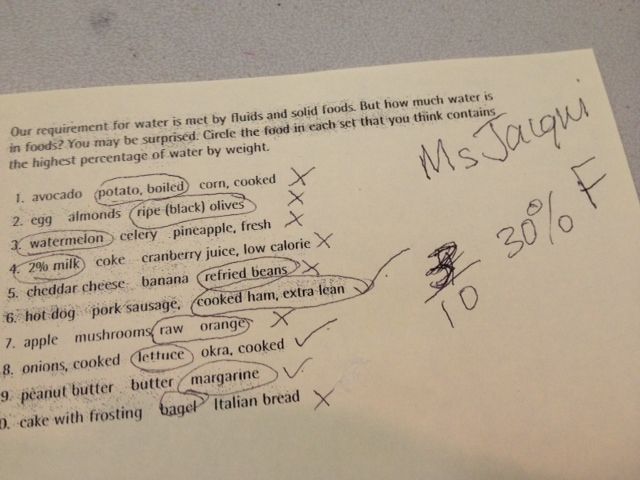 Our requirement for water is met by fluids and solid foods. But how much water is
in foods? You may be surprised. Circle the food in each set that you think contains
the highest percentage of water by weight.
Ms Jacqui
1. avocado potato, boiled corn, cooked X
2. egg almonds ripe (black) olives X
3. watermelon celery pineapple, fresh X
4. 2% milk coke cranberry juice, low calorie X
5. cheddar cheese banana refried beans X
6. hot dog pork sausage, cooked ham, extra lean ✓
7. apple mushrooms raw orange X
8. onions, cooked lettuce okra, cooked ✓
9. peanut butter butter margarine ✓
0. cake with frosting bagel Italian bread X
3/10 30% F